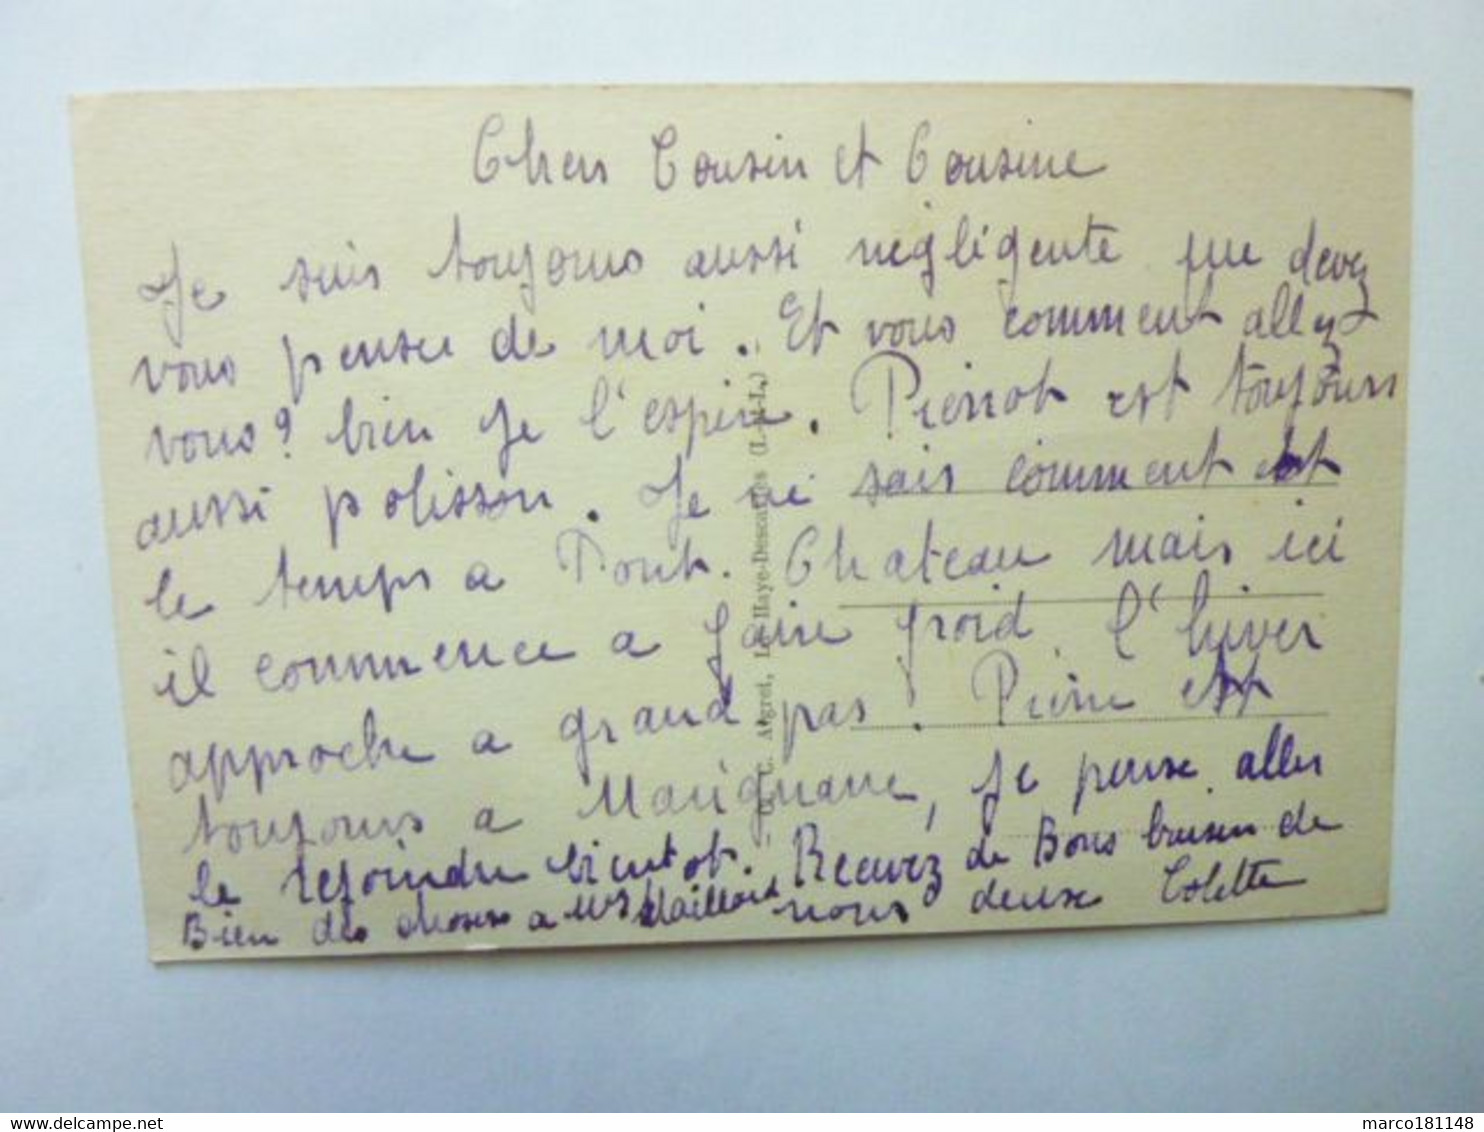 Chers Cousin et Cousine
Je suis toujours aussi négligente que devez
vous penser de moi. Et vous comment allez
vous? bien je l'espère. Pierrot est toujours
aussi polisson. Je ne sais comment est
le temps a Pont. Chateau mais ici
il commence a faire froid. l'hiver
approche a grand pas. Pierre est
toujours a Marignane, je pense aller
le rejoindre bientot. Recevez de Bons baisers de
nous deux Colette
Bien des choses a Mrs Maillois
C. Augret, La Haye-Descartes (I.-et-L.)
marco181148